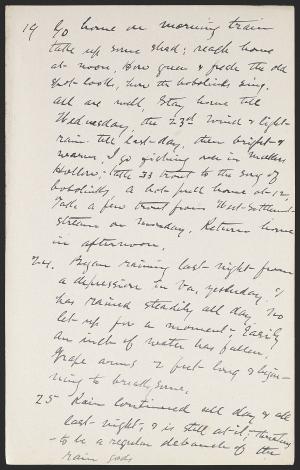 19 Go home on morning train
take up some shad; reach home
at noon. How green & fresh the old
spot looks, how the bobolinks sing.
All are well, Stay home till
Wednesday, the 23d. Wind & light
rain till last day, then bright &
warm, I go fishing over in Meekers
Hollow; take 33 trout to the song of
bobolinks, a hot pull home at 12,
Take a few trout from West Settlement
stream on Monday. Return home
in afternoon.
24. Began raining last night from
a depression in Va, yesterday. It
has rained steadily all day, no
let-up for a moment; Easily
an inch of water has fallen,
Grape arms 2 feet long & begin-
ning to break some.
25 Rain continued all day & all
last night, & is still at it; threatens
to be a regular debauch of the
rain gods